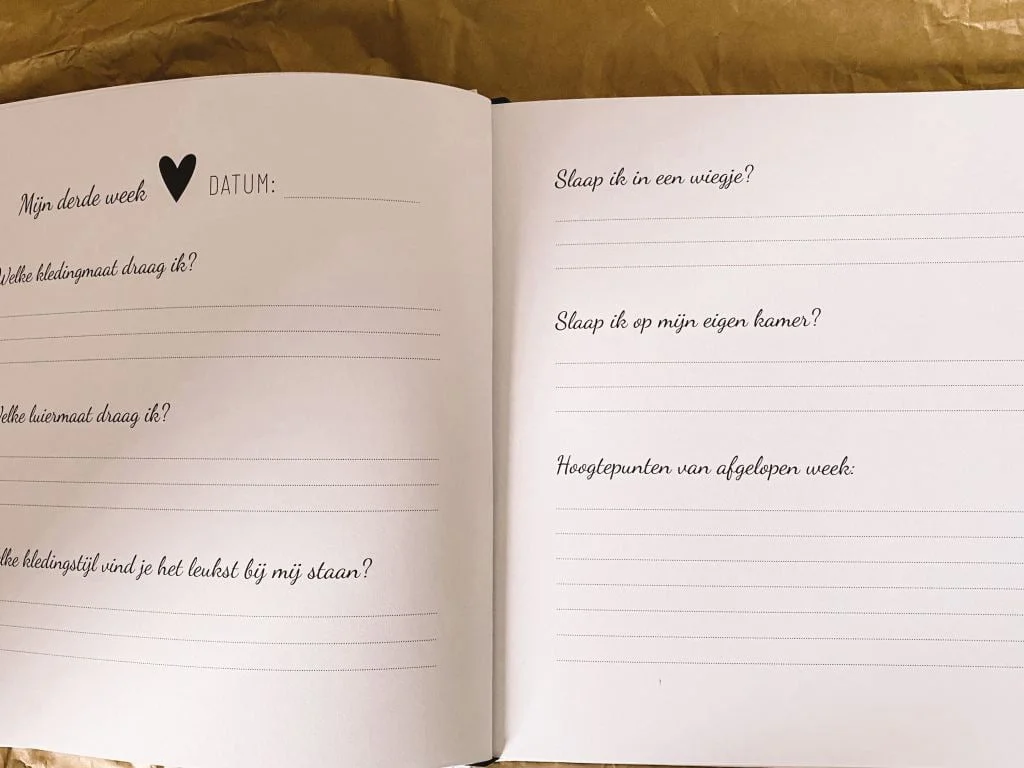 Mijn derde week DATUM:
Welke kledingmaat draag ik?
Welke luiermaat draag ik?
kledingstijl vind je het leukst bij mij staan?
Slaap ik in een wiegje?
Slaap ik op mijn eigen kamer?
Hoogtepunten van afgelopen week: